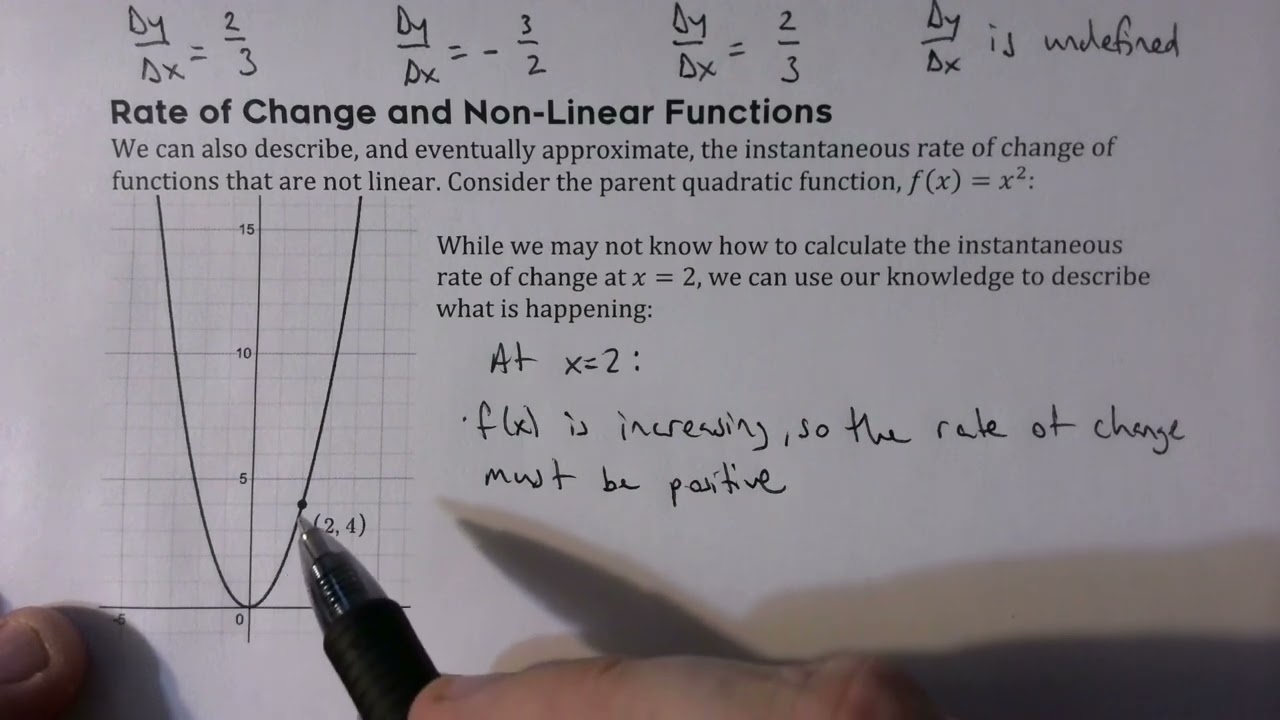 Δy/Δx = 2/3    Δy/Δx = - 3/2    Δy/Δx = 2/3    Δy/Δx is undefined
Rate of Change and Non-Linear Functions
We can also describe, and eventually approximate, the instantaneous rate of change of
functions that are not linear. Consider the parent quadratic function, f(x) = x²:
15
While we may not know how to calculate the instantaneous
rate of change at x = 2, we can use our knowledge to describe
what is happening:
10
At x=2:
· f(x) is increasing, so the rate of change
must be positive
5
(2, 4)
-5
0